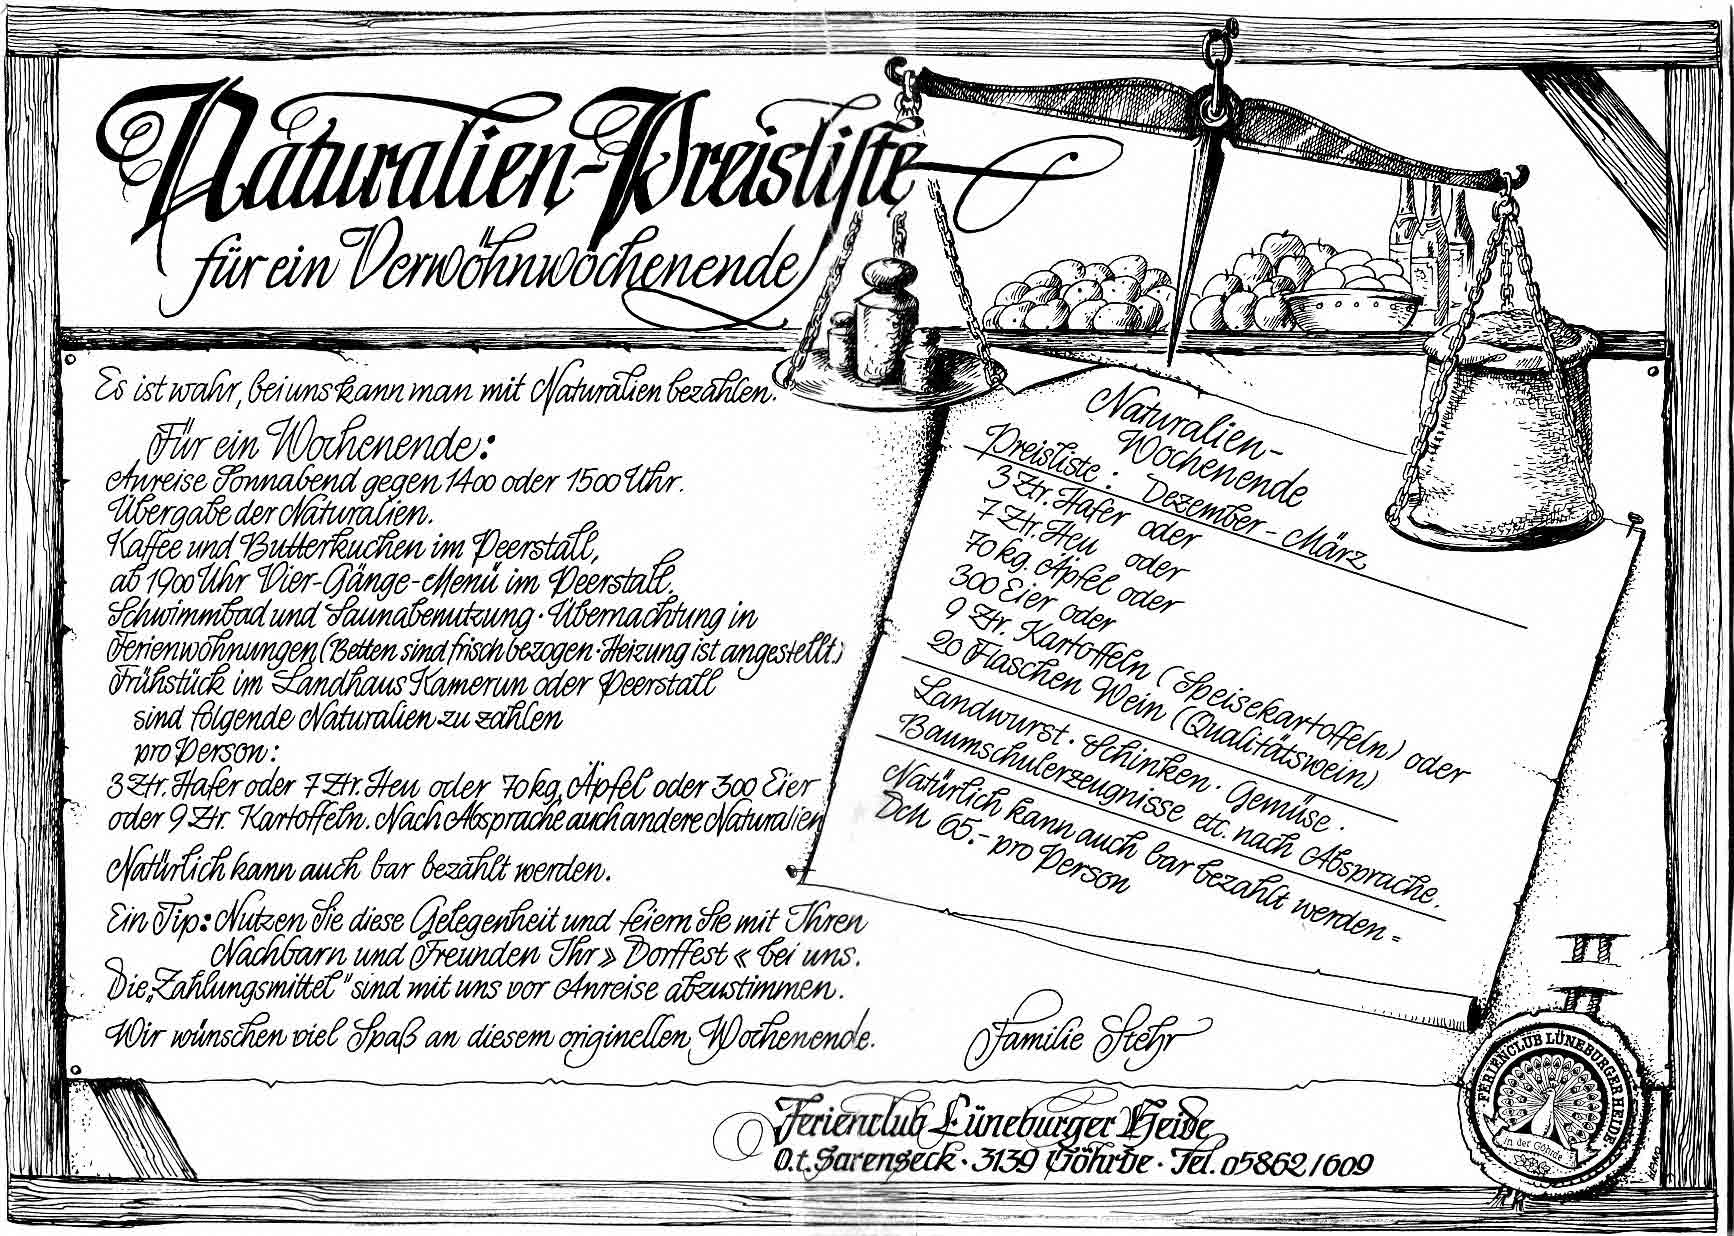 Naturalien-Preisliste
für ein Verwöhnwochenende
Es ist wahr, bei uns kann man mit Naturalien bezahlen.
Für ein Wochenende:
Anreise Sonnabend gegen 1400 oder 1500 Uhr.
Übergabe der Naturalien.
Kaffee und Butterkuchen im Peerstall,
ab 1900 Uhr Vier-Gänge-Menü im Peerstall.
Schwimmbad und Saunabenutzung · Übernachtung in
Ferienwohnungen (Betten sind frisch bezogen · Heizung ist angestellt)
Frühstück im Landhaus Kamerun oder Peerstall
sind folgende Naturalien zu zahlen
pro Person:
3 Ztr. Hafer oder 7 Ztr. Heu oder 70 kg. Äpfel oder 300 Eier
oder 9 Ztr. Kartoffeln. Nach Absprache auch andere Naturalien
Natürlich kann auch bar bezahlt werden.
Ein Tip: Nutzen Sie diese Gelegenheit und feiern Sie mit Ihren
Nachbarn und Freunden Ihr » Dorffest « bei uns.
Die „Zahlungsmittel" sind mit uns vor Anreise abzustimmen.
Wir wünschen viel Spaß an diesem originellen Wochenende.
Familie Stehr
Naturalien-
Wochenende
Preisliste: Dezember - März
3 Ztr. Hafer oder
7 Ztr. Heu oder
70 kg. Äpfel oder
300 Eier oder
9 Ztr. Kartoffeln (Speisekartoffeln) oder
20 Flaschen Wein (Qualitätswein)
Landwurst · Schinken · Gemüse ·
Baumschulerzeugnisse etc. nach Absprache.
Natürlich kann auch bar bezahlt werden =
DM 65.- pro Person
Ferienclub Lüneburger Heide
O.t. Sarenseck · 3139 Göhrde · Tel. 05862/609
· FERIENCLUB LÜNEBURGER HEIDE ·
in der Göhrde